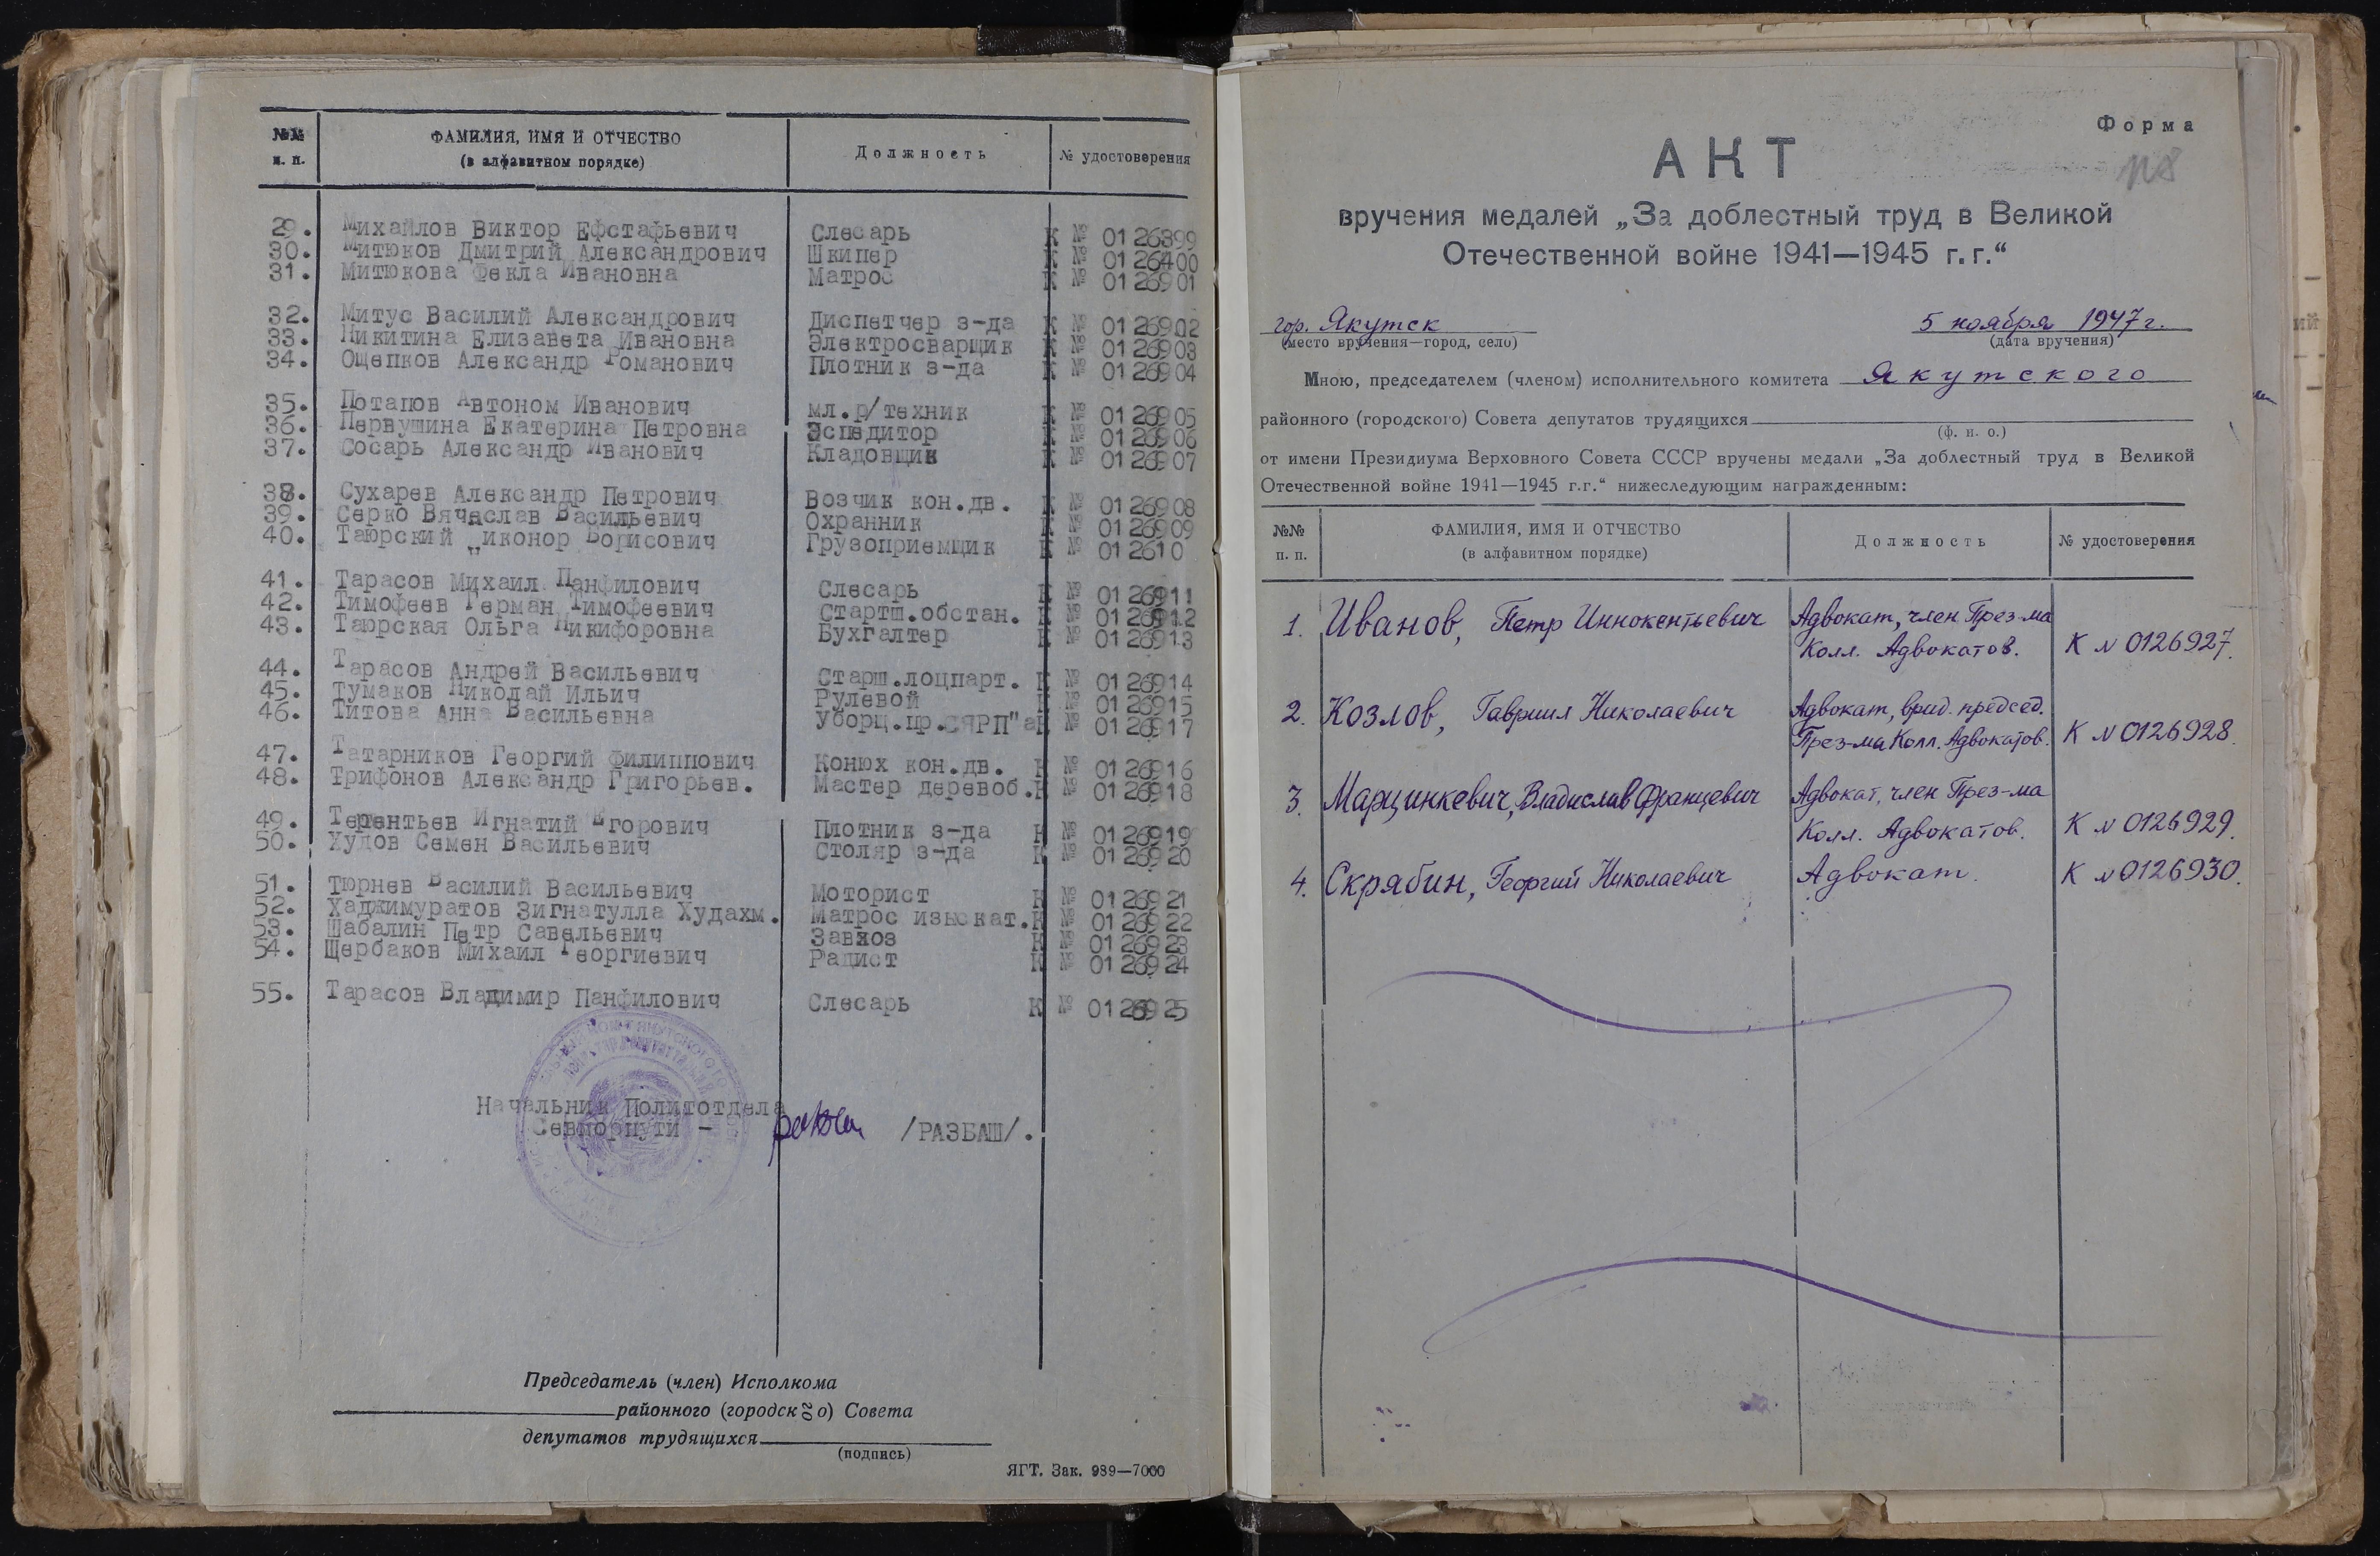 №№ п. п.
ФАМИЛИЯ, ИМЯ И ОТЧЕСТВО (в алфавитном порядке)
Должность
№ удостоверения
29. Михайлов Виктор Ефстафьевич Слесарь К № 0126399
30. Митюков Дмитрий Александрович Шкипер К № 0126400
31. Митюкова Фекла Ивановна Матрос К № 0126901
32. Митус Василий Александрович Диспетчер з-да К № 0126902
33. Никитина Елизавета Ивановна Электросварщик К № 0126903
34. Ощепков Александр Романович Плотник з-да К № 0126904
35. Потапов Автоном Иванович мл.р/техник К № 0126905
36. Первушина Екатерина Петровна Эспедитор К № 0126906
37. Сосарь Александр Иванович Кладовщик К № 0126907
38. Сухарев Александр Петрович Возчик кон.дв. К № 0126908
39. Серко Вячаслав Васильевич Охранник К № 0126909
40. Таюрский Никонор Борисович Грузоприемщик К № 012610
41. Тарасов Михаил Панфилович Слесарь К № 0126911
42. Тимофеев Герман Тимофеевич Стартш.обстан. К № 0126912
43. Таюрская Ольга Никифоровна Бухгалтер К № 0126913
44. Тарасов Андрей Васильевич Старш.лоцпарт. К № 0126914
45. Тумаков Николай Ильич Рулевой К № 0126915
46. Титова Анна Васильевна Уборщ.пр.СЯРП"а К № 0126917
47. Татарников Георгий Филиппович Конюх кон.дв. К № 0126916
48. Трифонов Александр Григорьев. Мастер деревоб. К № 0126918
49. Терентьев Игнатий Егорович Плотник з-да К № 0126919
50. Худов Семен Васильевич Столяр з-да К № 0126920
51. Тюрнев Василий Васильевич Моторист К № 0126921
52. Хаджимуратов Зигнатулла Худахм. Матрос изыскат. К № 0126922
53. Шабалин Петр Савельевич Завхоз К № 0126923
54. Щербаков Михаил Георгиевич Радист К № 0126924
55. Тарасов Владимир Панфилович Слесарь К № 0126925
Начальник Политотдела
Севморпути - /РАЗБАШ/.
Председатель (член) Исполкома
районного (городского) Совета
депутатов трудящихся
(подпись)
ЯГТ. Зак. 989—7000
Форма
№8
АКТ
вручения медалей „За доблестный труд в Великой
Отечественной войне 1941—1945 г.г.“
гор. Якутск 5 ноября 1947 г.
(место вручения—город, село) (дата вручения)
Мною, председателем (членом) исполнительного комитета Якутского
районного (городского) Совета депутатов трудящихся
(ф. и. о.)
от имени Президиума Верховного Совета СССР вручены медали „За доблестный труд в Великой
Отечественной войне 1941—1945 г.г.“ нижеследующим награжденным:
№№ п. п.
ФАМИЛИЯ, ИМЯ И ОТЧЕСТВО (в алфавитном порядке)
Должность
№ удостоверения
1. Иванов, Петр Иннокентьевич Адвокат, член През-ма
Колл. Адвокатов. К № 0126927.
2. Козлов, Гавриил Николаевич Адвокат, врид. председ.
През-ма Колл. Адвокатов. К № 0126928.
3. Марцинкевич, Владислав Францевич Адвокат, член През-ма
Колл. Адвокатов. К № 0126929.
4. Скрябин, Георгий Николаевич Адвокат. К № 0126930.